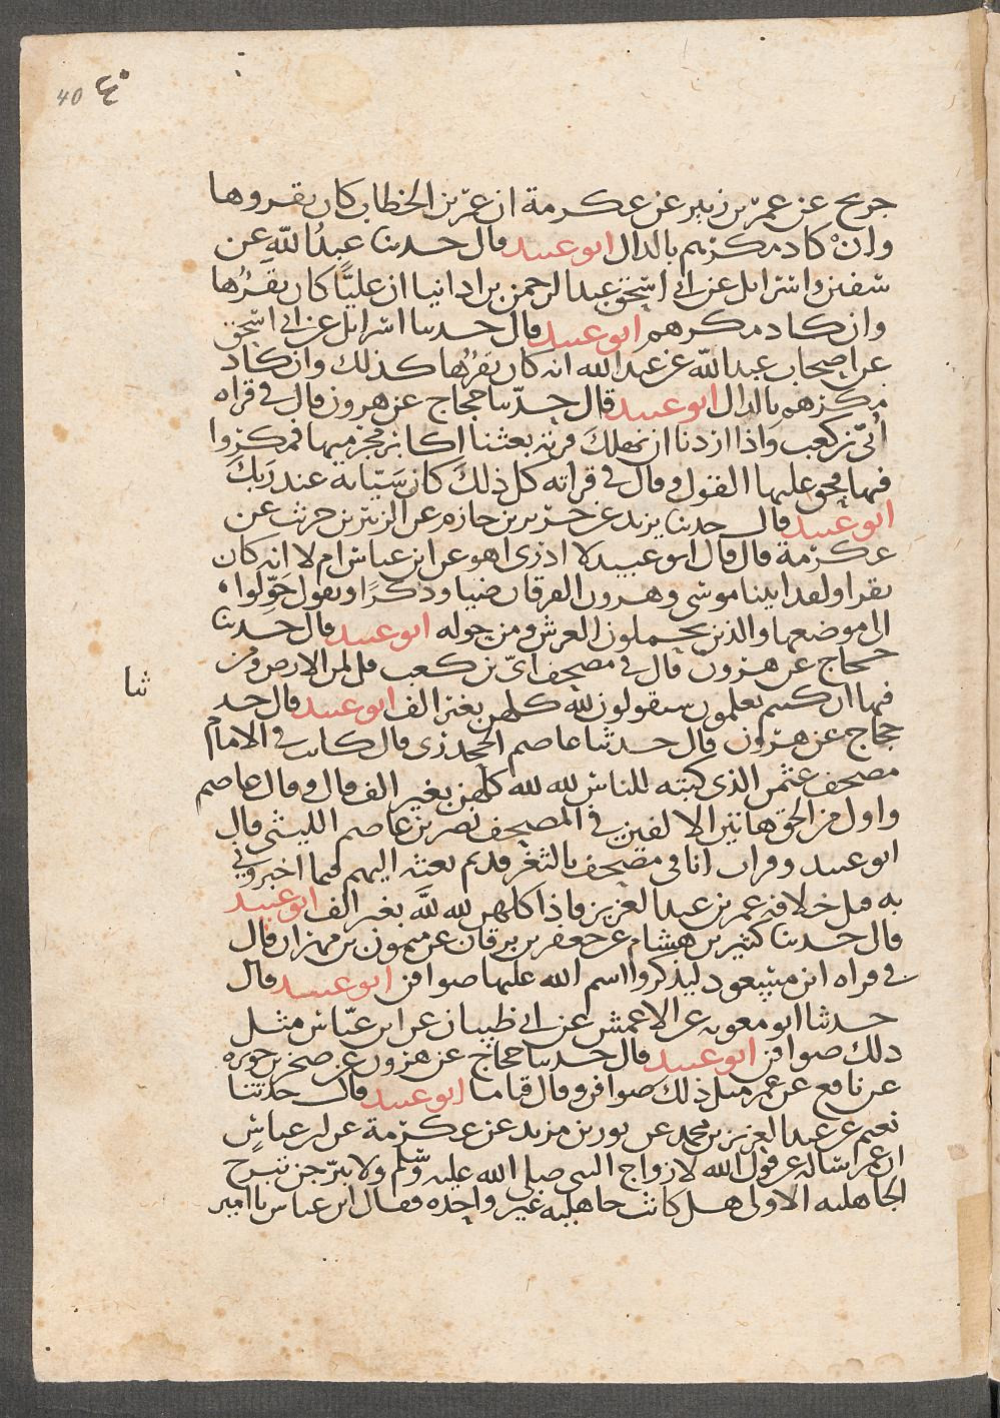 40 ٤٠
جريج عن عمر بن زبير عن عكرمة ان عمر بن الخطاب كان يقروها
وانْ كاد مكرهم بالدال ابو عبيد قال حدثنا عبدُ اللهِ عن
سفين واسرايل عن ابي اسحق عبد الرحمن بن ادانيا ان عليًّا كان يقرُها
وان كاد مكرهم ابو عبيد قال حدثنا اسرايل عن ابي اسحق
عن اصحاب عبد الله عن عبد الله انه كان يقرُها كذلك وان كاد
مكرهم بالدال ابو عبيد قال حدّثنا حجاج عن هرون قال في قراه
اُبيّ بن كعب واذا اردنا ان نهلك قرية بعثنا اكابر مجرميها فمكروا
فيها فحق عليها القول وقال في قراته كل ذلك كان سَيّاته عند ربك
ابو عبيد قال حدثنا يزيد عن جرير بن حازم عن الزبير بن خريت عن
عكرمة قال قال ابو عبيد لا ادري اهو عن ابن عباس ام لا انه كان
يقرا ولقد اتينا موسى وهرون الفرقان ضيا وذكرًا ويقول حَوِّلوا
الى موضعها والذين يحملون العرش ومن حوله ابو عبيد قال حدثنا
حجاج عن هرون قال في مصحف ابيّ بن كعب قل لمن الارض ومن
فيها ان كنتم تعلمون سيقولون لله كلهن بغير الف ابو عبيد قال حد
ثنا
حجاج عن هرون قال حدثنا عاصم الجحدري قال كانت في الامام
مصحف عثمن الذي كتبه للناس لله لله كلهن بغير الف قال وقال عاصم
واول من الحق هاتين الالفين في المصحف نصر بن عاصم الليثي قال
ابو عبيد وقرات انا في مصحف بالثغر قديم بعث اليهم فيما اخبروني
به قبل خلافة عمر بن عبد العزيز فاذا كلهن لله لله بغير الف ابو عبيد
قال حدثنا كثير بن هشام عن جعفر بن برقان عن ميمون بن مهران قال
في قراه ابن مسعود ليذكروا اسم الله عليها صوافن ابو عبيد قال
حدثنا ابو معويه عن الاعمش عن ابي ظبيان عن ابن عبّاس مثل
ذلك صوافن ابو عبيد قال حدثنا حجاج عن هرون عن صخر بن جويره
عن نافع عن عمر مثل ذلك صوافن وقال قياما ابو عبيد قال حدثنا
نعيم عن عبد العزيز بن محمد عن ثور بن مزيد عن عكرمة عن ابن عباس
ان عمر ساله عن قول الله لازواج النبي صلى الله عليه وسلم ولا تبرّجن تبرج
الجاهليه الاولى هل كانت جاهليه غير واحده فقال ابن عباس يا امير